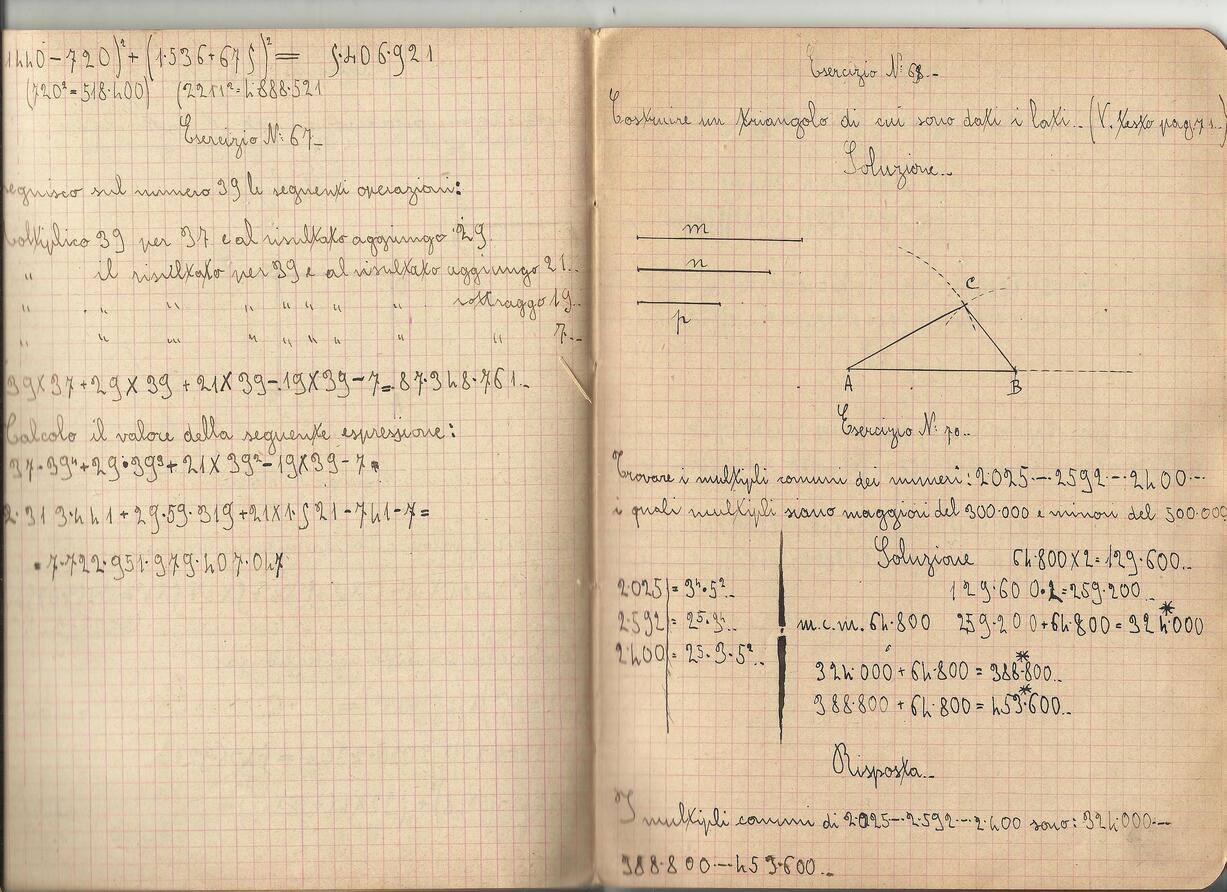 1440-720)²+(1·536+675)²= 5·406·921
(720²=518·400) (2211²=4·888·521
Esercizio N: 67.
eguisco sul numero 39 le seguenti operazioni:
oltiplico 39 per 37 e al risultato aggiungo 29.
" il risultato per 39 e al risultato aggiungo 21..
" " " " " " " " sottraggo 19..
" " " " " " " " " 7...
39X37+29X39+21X39-19X39-7=87·348·761..
Calcolo il valore della seguente espressione:
37·39⁴+29·39³+21X39²-19X39-7=
2·313·441+29·59·319+21X1·521-741-7=
·7·722·951·979·407·047
Esercizio N: 68..
Costruire un triangolo di cui sono dati i lati.. (V. testo pag. 71..)
Soluzione..
m
n
p
C
A B
Esercizio N: 70..
Trovare i multipli comuni dei numeri: 2·025-·2592-·-2400-·-
i quali multipli siano maggiori del 300·000 e minori del 500·000
Soluzione 64·800X2=129·600..
129·600·2=259·200..
2·025 = 3⁴·5²..
2·592 = 2⁵·3⁴.. m.c.m. 64·800 259·200+64·800=324*000
2·400 = 2⁵·3·5².. 324·000+64·800=388*800..
388·800+64·800=453*600..
Risposta..
I multipli comuni di 2·025-·2·592-·2·400 sono: 324·000-·-
388·800-·-453·600..